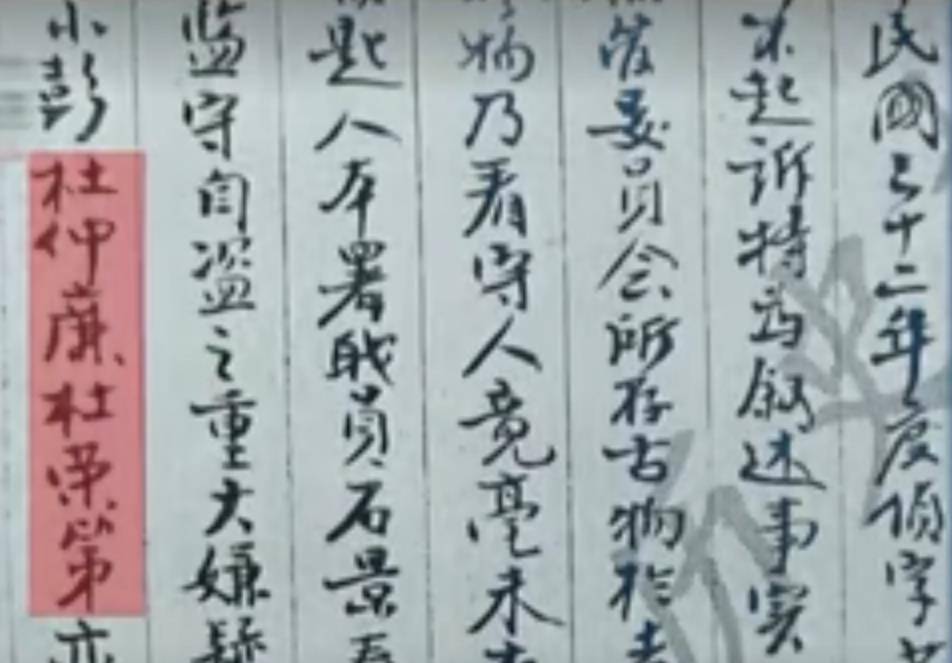 民國三十二年度偵字
不起訴特為敘述事實
管委員会所存古物於
物乃看守人竟毫未
起人本署職員石景
监守自盗之重大嫌疑
小彭杜仲廉杜荣第亦